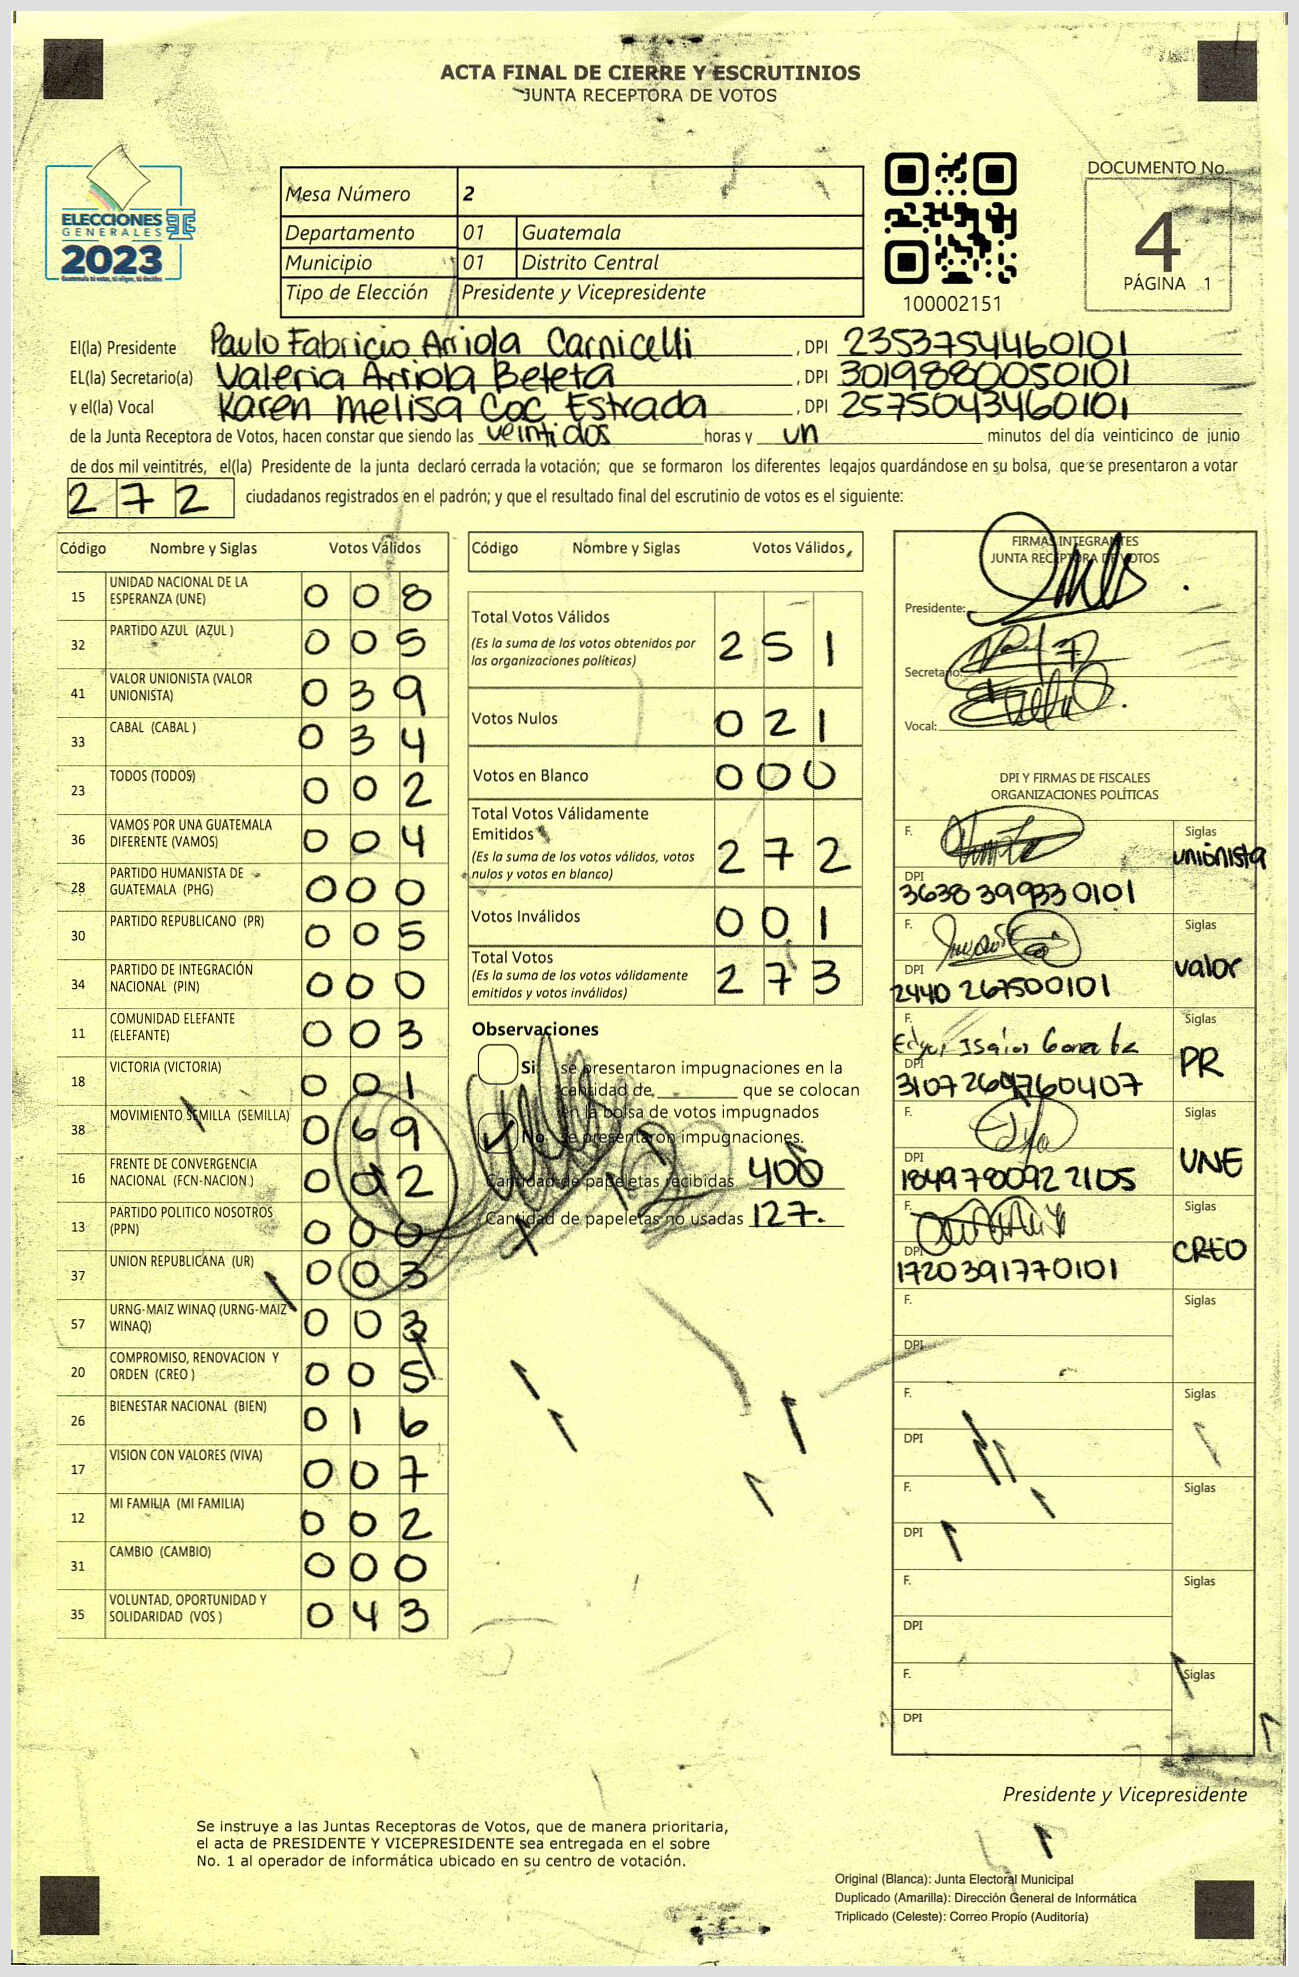 ACTA FINAL DE CIERRE Y ESCRUTINIOS
JUNTA RECEPTORA DE VOTOS
ELECCIONES
GENERALES
2023
Mesa Número 2
Departamento 01 Guatemala
Municipio 01 Distrito Central
Tipo de Elección Presidente y Vicepresidente
100002151
DOCUMENTO No.
4
PÁGINA 1
El(la) Presidente Paulo Fabricio Arriola Carnicelli, DPI 2353754460101
EL(la) Secretario(a) Valeria Arriola Beteta, DPI 3019880050101
y el(la) Vocal Karen Melisa Coc Estrada, DPI 2575043460101
de la Junta Receptora de Votos, hacen constar que siendo las veintidos horas y un minutos del día veinticinco de junio
de dos mil veintitrés, el(la) Presidente de la junta declaró cerrada la votación; que se formaron los diferentes legajos guardándose en su bolsa, que se presentaron a votar
272 ciudadanos registrados en el padrón; y que el resultado final del escrutinio de votos es el siguiente:
Código Nombre y Siglas Votos Válidos
15 UNIDAD NACIONAL DE LA
ESPERANZA (UNE) 008
32 PARTIDO AZUL (AZUL ) 005
41 VALOR UNIONISTA (VALOR
UNIONISTA) 039
33 CABAL (CABAL ) 034
23 TODOS (TODOS) 002
36 VAMOS POR UNA GUATEMALA
DIFERENTE (VAMOS) 004
28 PARTIDO HUMANISTA DE
GUATEMALA (PHG) 000
30 PARTIDO REPUBLICANO (PR) 005
34 PARTIDO DE INTEGRACIÓN
NACIONAL (PIN) 000
11 COMUNIDAD ELEFANTE
(ELEFANTE) 003
18 VICTORIA (VICTORIA) 001
38 MOVIMIENTO SEMILLA (SEMILLA) 069
16 FRENTE DE CONVERGENCIA
NACIONAL (FCN-NACION ) 0 2
13 PARTIDO POLITICO NOSOTROS
(PPN) 000
37 UNION REPUBLICANA (UR) 003
57 URNG-MAIZ WINAQ (URNG-MAIZ
WINAQ) 003
20 COMPROMISO, RENOVACION Y
ORDEN (CREO ) 005
26 BIENESTAR NACIONAL (BIEN) 016
17 VISION CON VALORES (VIVA) 007
12 MI FAMILIA (MI FAMILIA) 002
31 CAMBIO (CAMBIO) 000
35 VOLUNTAD, OPORTUNIDAD Y
SOLIDARIDAD (VOS ) 043
Código Nombre y Siglas Votos Válidos
Total Votos Válidos
(Es la suma de los votos obtenidos por
las organizaciones políticas) 251
Votos Nulos 021
Votos en Blanco 000
Total Votos Válidamente
Emitidos
(Es la suma de los votos válidos, votos
nulos y votos en blanco) 272
Votos Inválidos 001
Total Votos
(Es la suma de los votos válidamente
emitidos y votos inválidos) 273
Observaciones
Si se presentaron impugnaciones en la
cantidad de ________ que se colocan
en la bolsa de votos impugnados
No se presentaron impugnaciones.
Cantidad de papeletas recibidas 400
Cantidad de papeletas no usadas 127.
FIRMAS INTEGRANTES
JUNTA RECEPTORA DE VOTOS
Presidente:
Secretario:
Vocal:
DPI Y FIRMAS DE FISCALES
ORGANIZACIONES POLÍTICAS
F. Siglas
unionista
DPI
3638 399330101
F. Siglas
valor
DPI
2440 267500101
F. Siglas
Isaias
PR
DPI
3107 264760407
F. Siglas
UNE
DPI
1849780092 2105
F. Siglas
CREO
DPI
1720391770101
F. Siglas
DPI
F. Siglas
DPI
F. Siglas
DPI
F. Siglas
DPI
F. Siglas
DPI
Presidente y Vicepresidente
Se instruye a las Juntas Receptoras de Votos, que de manera prioritaria,
el acta de PRESIDENTE Y VICEPRESIDENTE sea entregada en el sobre
No. 1 al operador de informática ubicado en su centro de votación.
Original (Blanca): Junta Electoral Municipal
Duplicado (Amarilla): Dirección General de Informática
Triplicado (Celeste): Correo Propio (Auditoría)